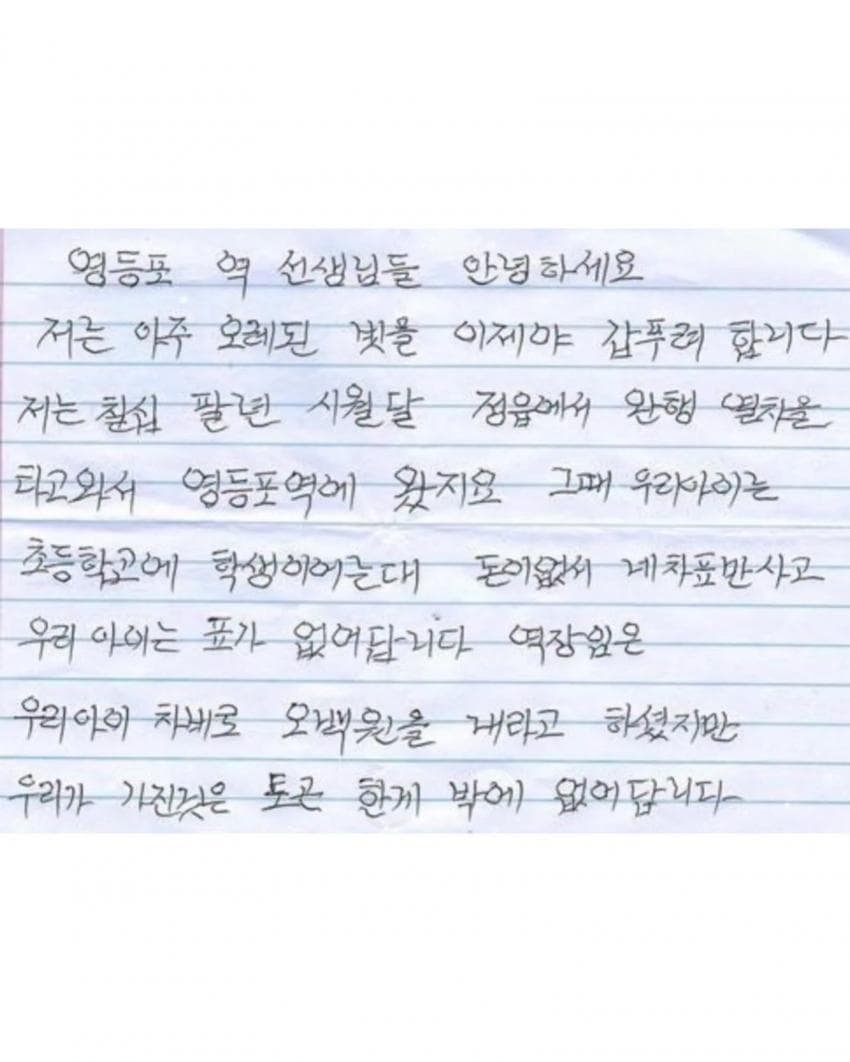 영등포 역 선생님들 안녕하세요
저는 아주 오레된 빛을 이제야 갑푸려 합니다
저는 칠십 팔련 시월달 정읍에서 완행 열차을
타고와서 영등포역에 왔지요 그때 우리아이는
초등학고에 학생이어는대 돈이없서 네차표만사고
우리 아이는 표가 없어답니다 역장임은
우리아이 차비로 오백원을 내라고 하셨지만
우리가 가진것은 토큰 한게 밖에 없어답니다